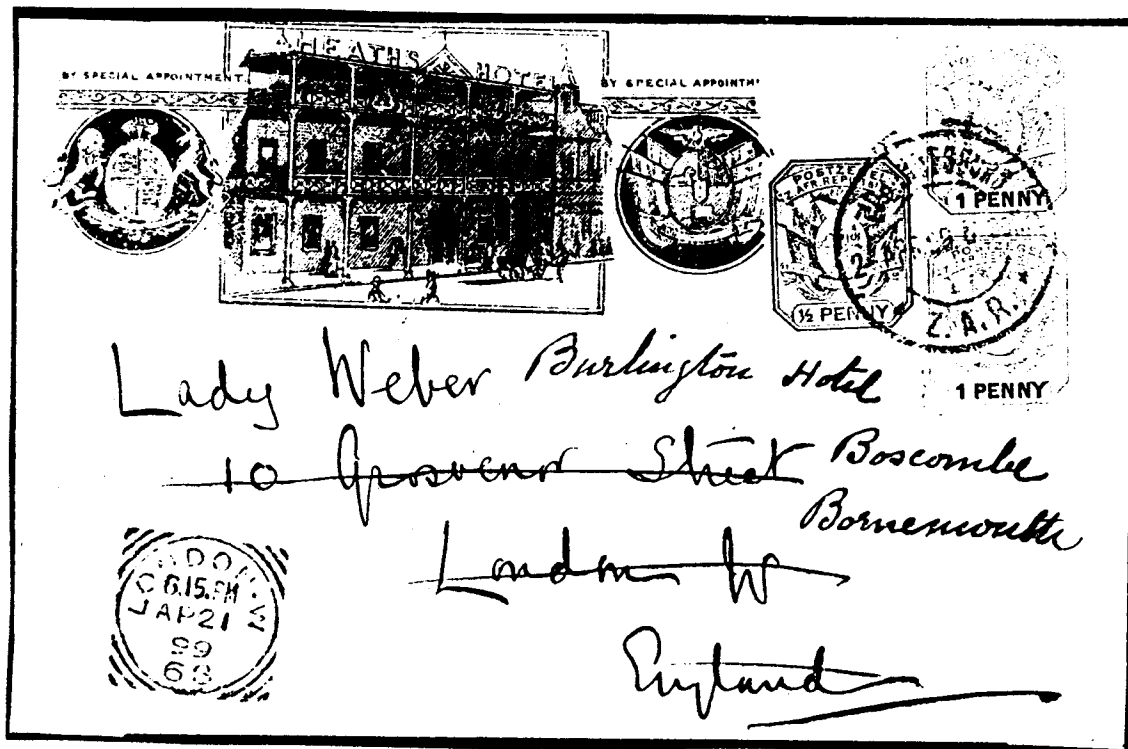 HEATHS HOTEL
BY SPECIAL APPOINTMENT.
BY SPECIAL APPOINTM
POSTZEGEL
Z. AFR. REPUBLIEK
½ PENNY
1 PENNY
Z.A.R.
1 PENNY
Lady Weber Burlington Hotel
10 Grosvenor Street Boscombe
Bornemouth
London W
England
LONDON.W
6.15.PM
AP21
99